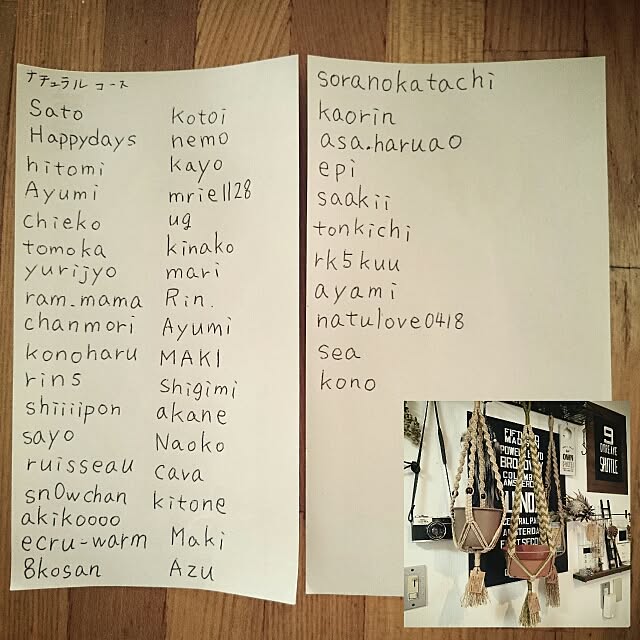 ナチュラル コース
Sato
Happydays
hitomi
Ayumi
chieko
tomoka
yurijyo
ram_mama
chanmori
konoharu
rin5
shiiiipon
sayo
ruisseau
sn0wchan
akikoooo
ecru-warm
8kosan
kotoi
nemo
kayo
mrie1128
ug
kinako
mari
Rin.
Ayumi
MAKI
Shigimi
akane
Naoko
cava
kitone
Maki
Azu
soranokatachi
kaorin
asa.harua0
epi
saakii
tonkichi
rk5kuu
ayami
natulove0418
sea
kono
9
SHUTTLE